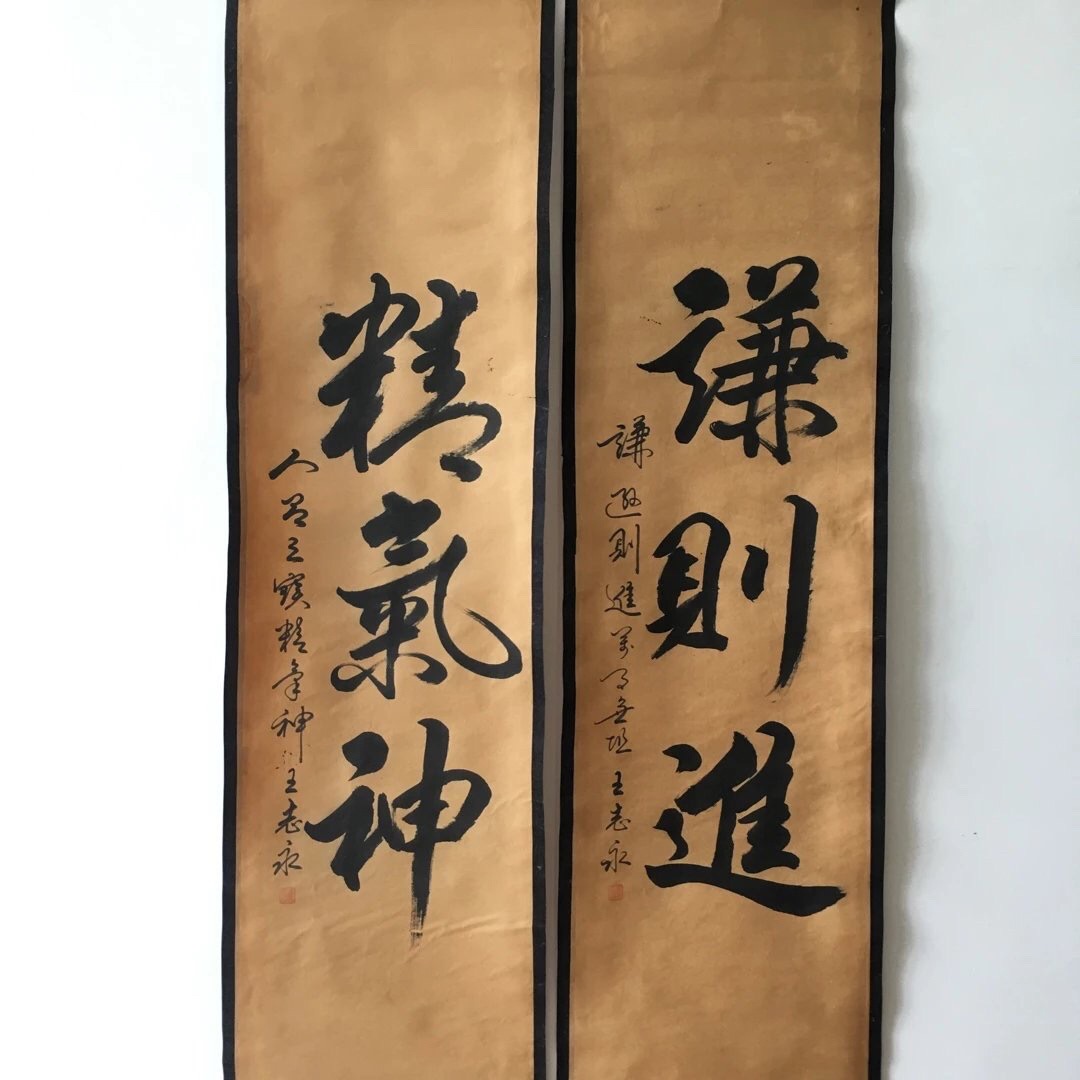 謙則進
謙遜則進萬事無阻 王志永
精氣神
人有三寶精氣神 王志永